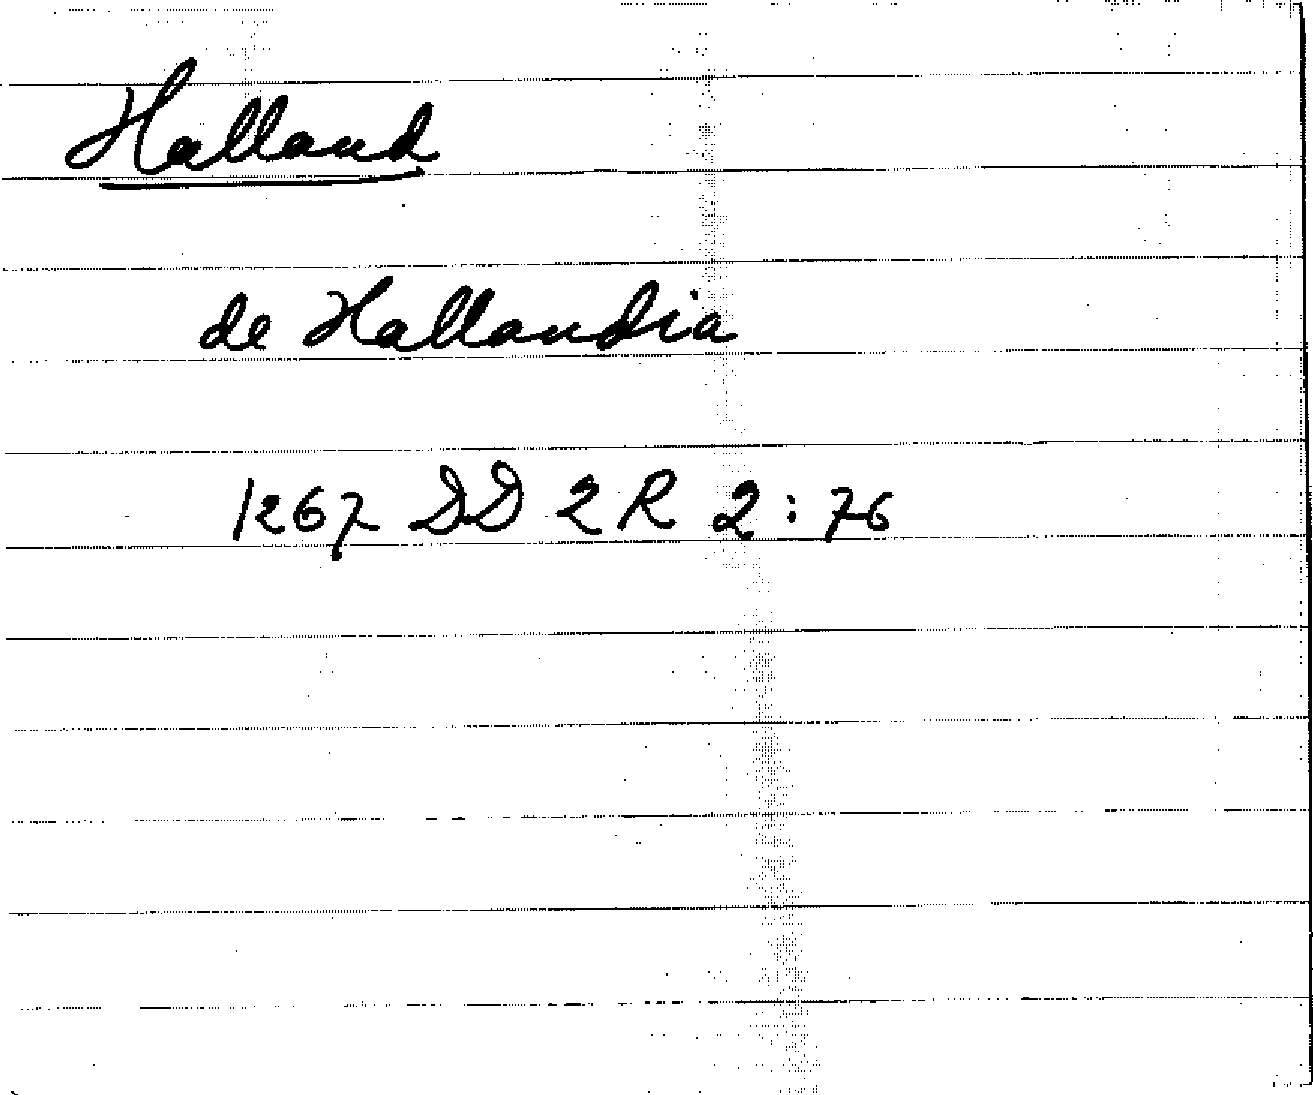 Halland
de Hallandia
1267 DD 2 R 2:76